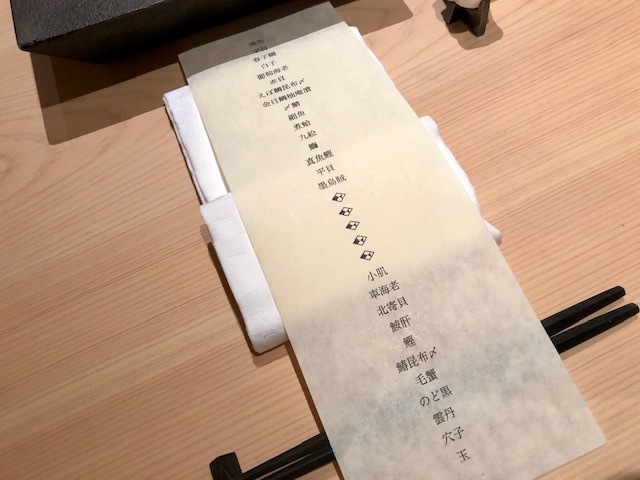 平目
春子鯛
白子
葡萄海老
赤貝
えぼ鯛昆布〆
金目鯛柚庵漬
〆鯖
細魚
煮蛤
九絵
鰤
真魚鰹
平貝
墨烏賊
小肌
車海老
北寄貝
鮟肝
鰹
鰆昆布〆
毛蟹
のど黒
雲丹
穴子
玉